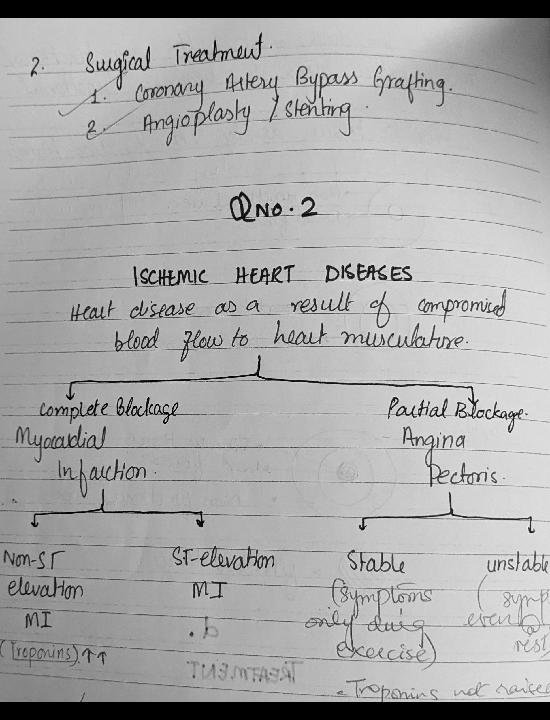 2. Surgical Treatment.
1. Coronary Artery Bypass Grafting.
2. Angioplasty / Stenting.
QNO. 2
ISCHEMIC HEART DISEASES
Heart disease as a result of compromised
blood flow to heart musculature.
Complete Blockage
Myocardial
Infarction.
Partial Blockage.
Angina
Pectoris.
Non-ST
elevation
MI
(Troponins).↑↑
ST-elevation
MI
Stable
(symptoms
only duig
exercise)
unstable
(symp
even @
rest)
- Troponins not raised
TREATMENT